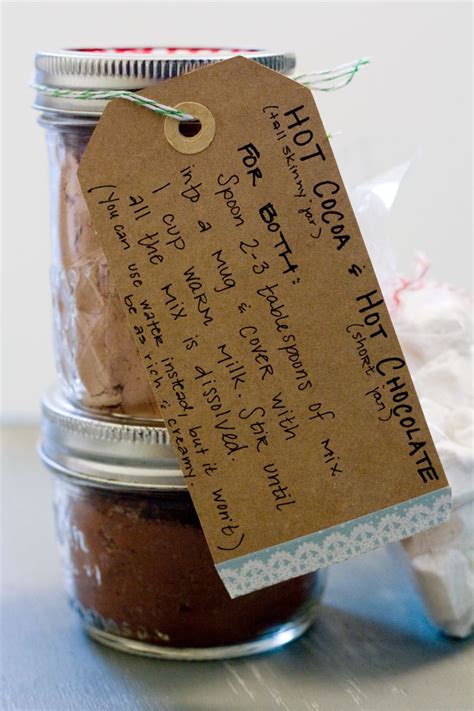 HOT COCOA & HOT CHOCOLATE
(tall skinny jar) (short jar)
FOR BOTH:
Spoon 2-3 tablespoons of mix
into a mug & cover with
1 cup warm milk. Stir until
all the mix is dissolved.
(You can use water instead, but it won't
be as rich & creamy.)